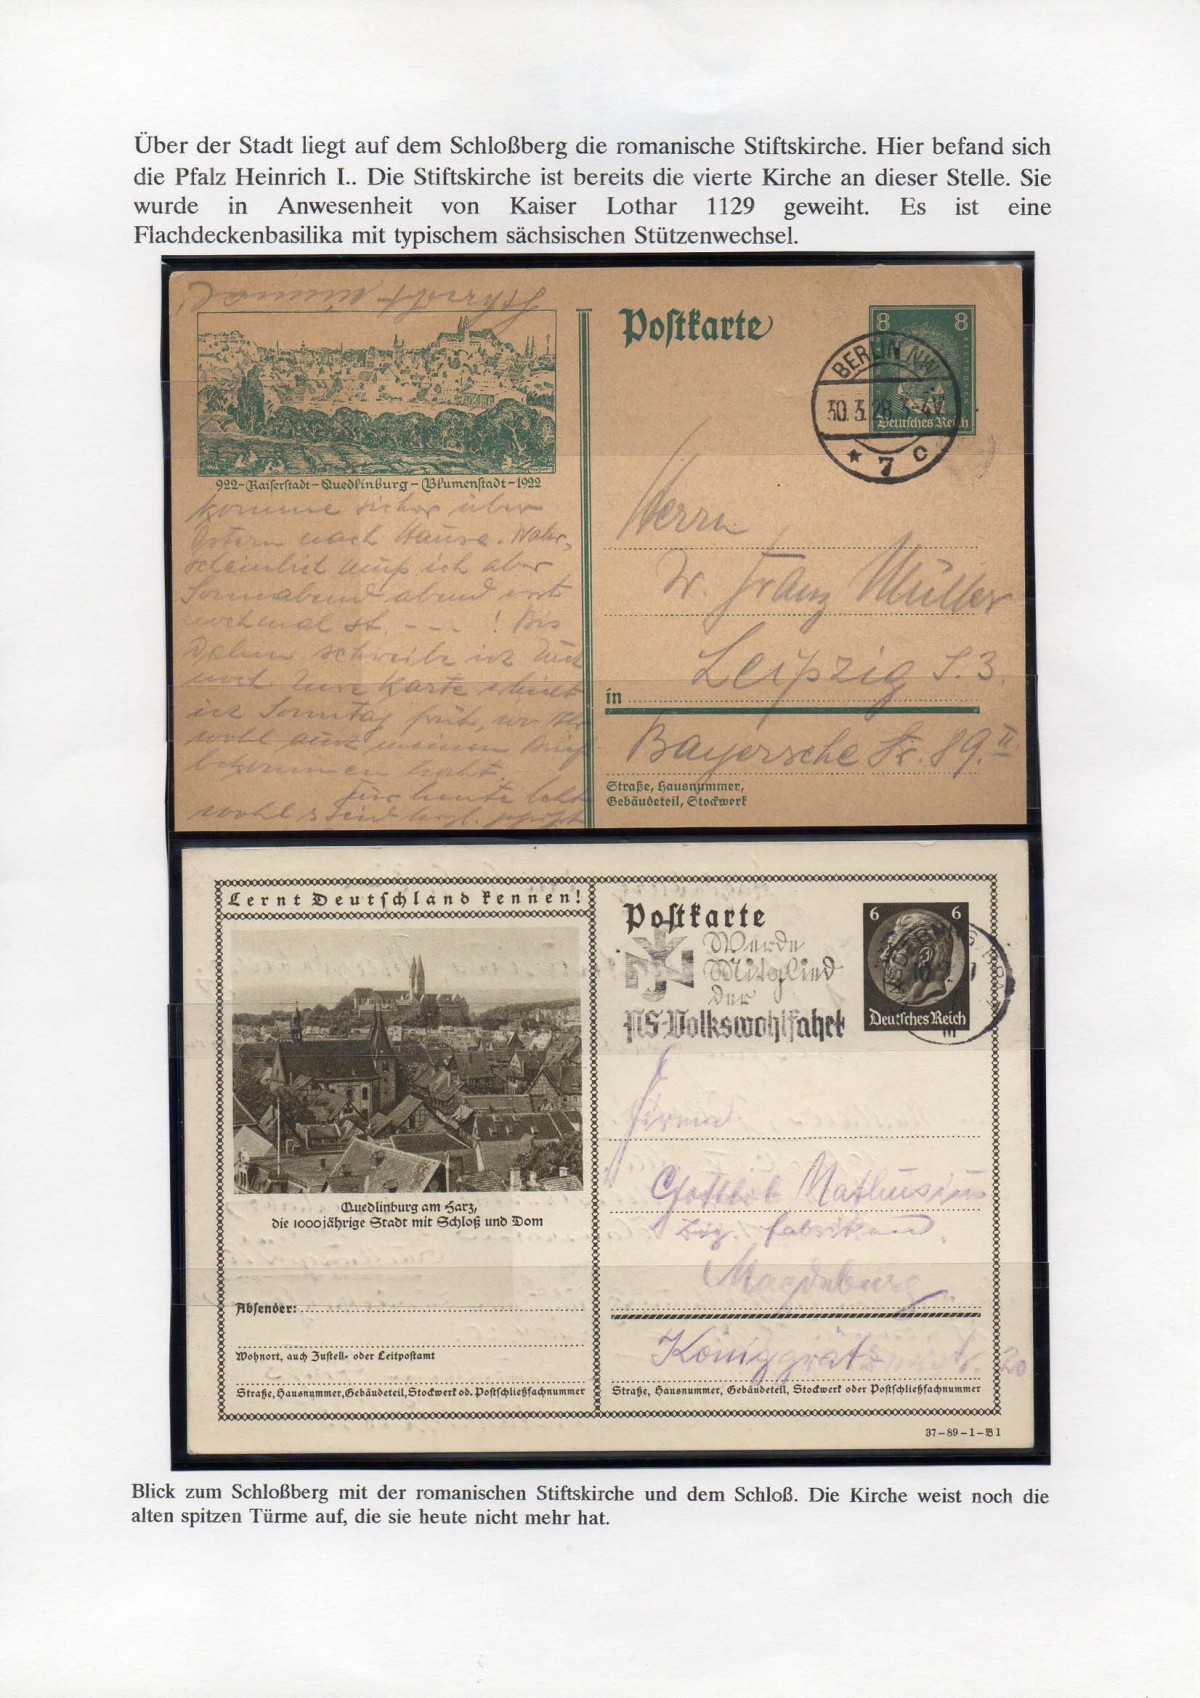 Über der Stadt liegt auf dem Schloßberg die romanische Stiftskirche. Hier befand sich
die Pfalz Heinrich I.. Die Stiftskirche ist bereits die vierte Kirche an dieser Stelle. Sie
wurde in Anwesenheit von Kaiser Lothar 1129 geweiht. Es ist eine
Flachdeckenbasilika mit typischem sächsischen Stützenwechsel.
Postkarte
8 8
Deutsches Reich
BERLIN NW
30.3.28.3-4V.
* 7 c
922-Kaiserstadt-Quedlinburg-Blumenstadt-1922
komme sicher über
Ostern nach Hause. Wahr-
scheinlich muß ich aber
Sonnabend abend erst
nochmal St. - - - ! Bis
dahin schreibe ich Euch
noch. Eure Karte erhielt
ich Sonntag früh, wo Ihr
wohl auch meinen Brief
bekommen habt.
Für heute lebt
wohl
Herrn
Dr. Franz Müller
in Leipzig S. 3.
Bayersche Str. 89. II
Straße, Hausnummer,
Gebäudeteil, Stockwerk
Lernt Deutschland kennen!
Quedlinburg am Harz,
die 1000jährige Stadt mit Schloß und Dom
Absender:
Wohnort, auch Zustell- oder Leitpostamt
Straße, Hausnummer, Gebäudeteil, Stockwerk od. Postschließfachnummer
Postkarte
Werde
Mitglied
der
NS Volkswohlfahrt
6 6
Deutsches Reich
Firma
Gottlob Nathusius
Zig. Fabriken
Magdeburg.
Königgrätz 20
Straße, Hausnummer, Gebäudeteil, Stockwerk oder Postschließfachnummer
37-89-1-B1
Blick zum Schloßberg mit der romanischen Stiftskirche und dem Schloß. Die Kirche weist noch die
alten spitzen Türme auf, die sie heute nicht mehr hat.